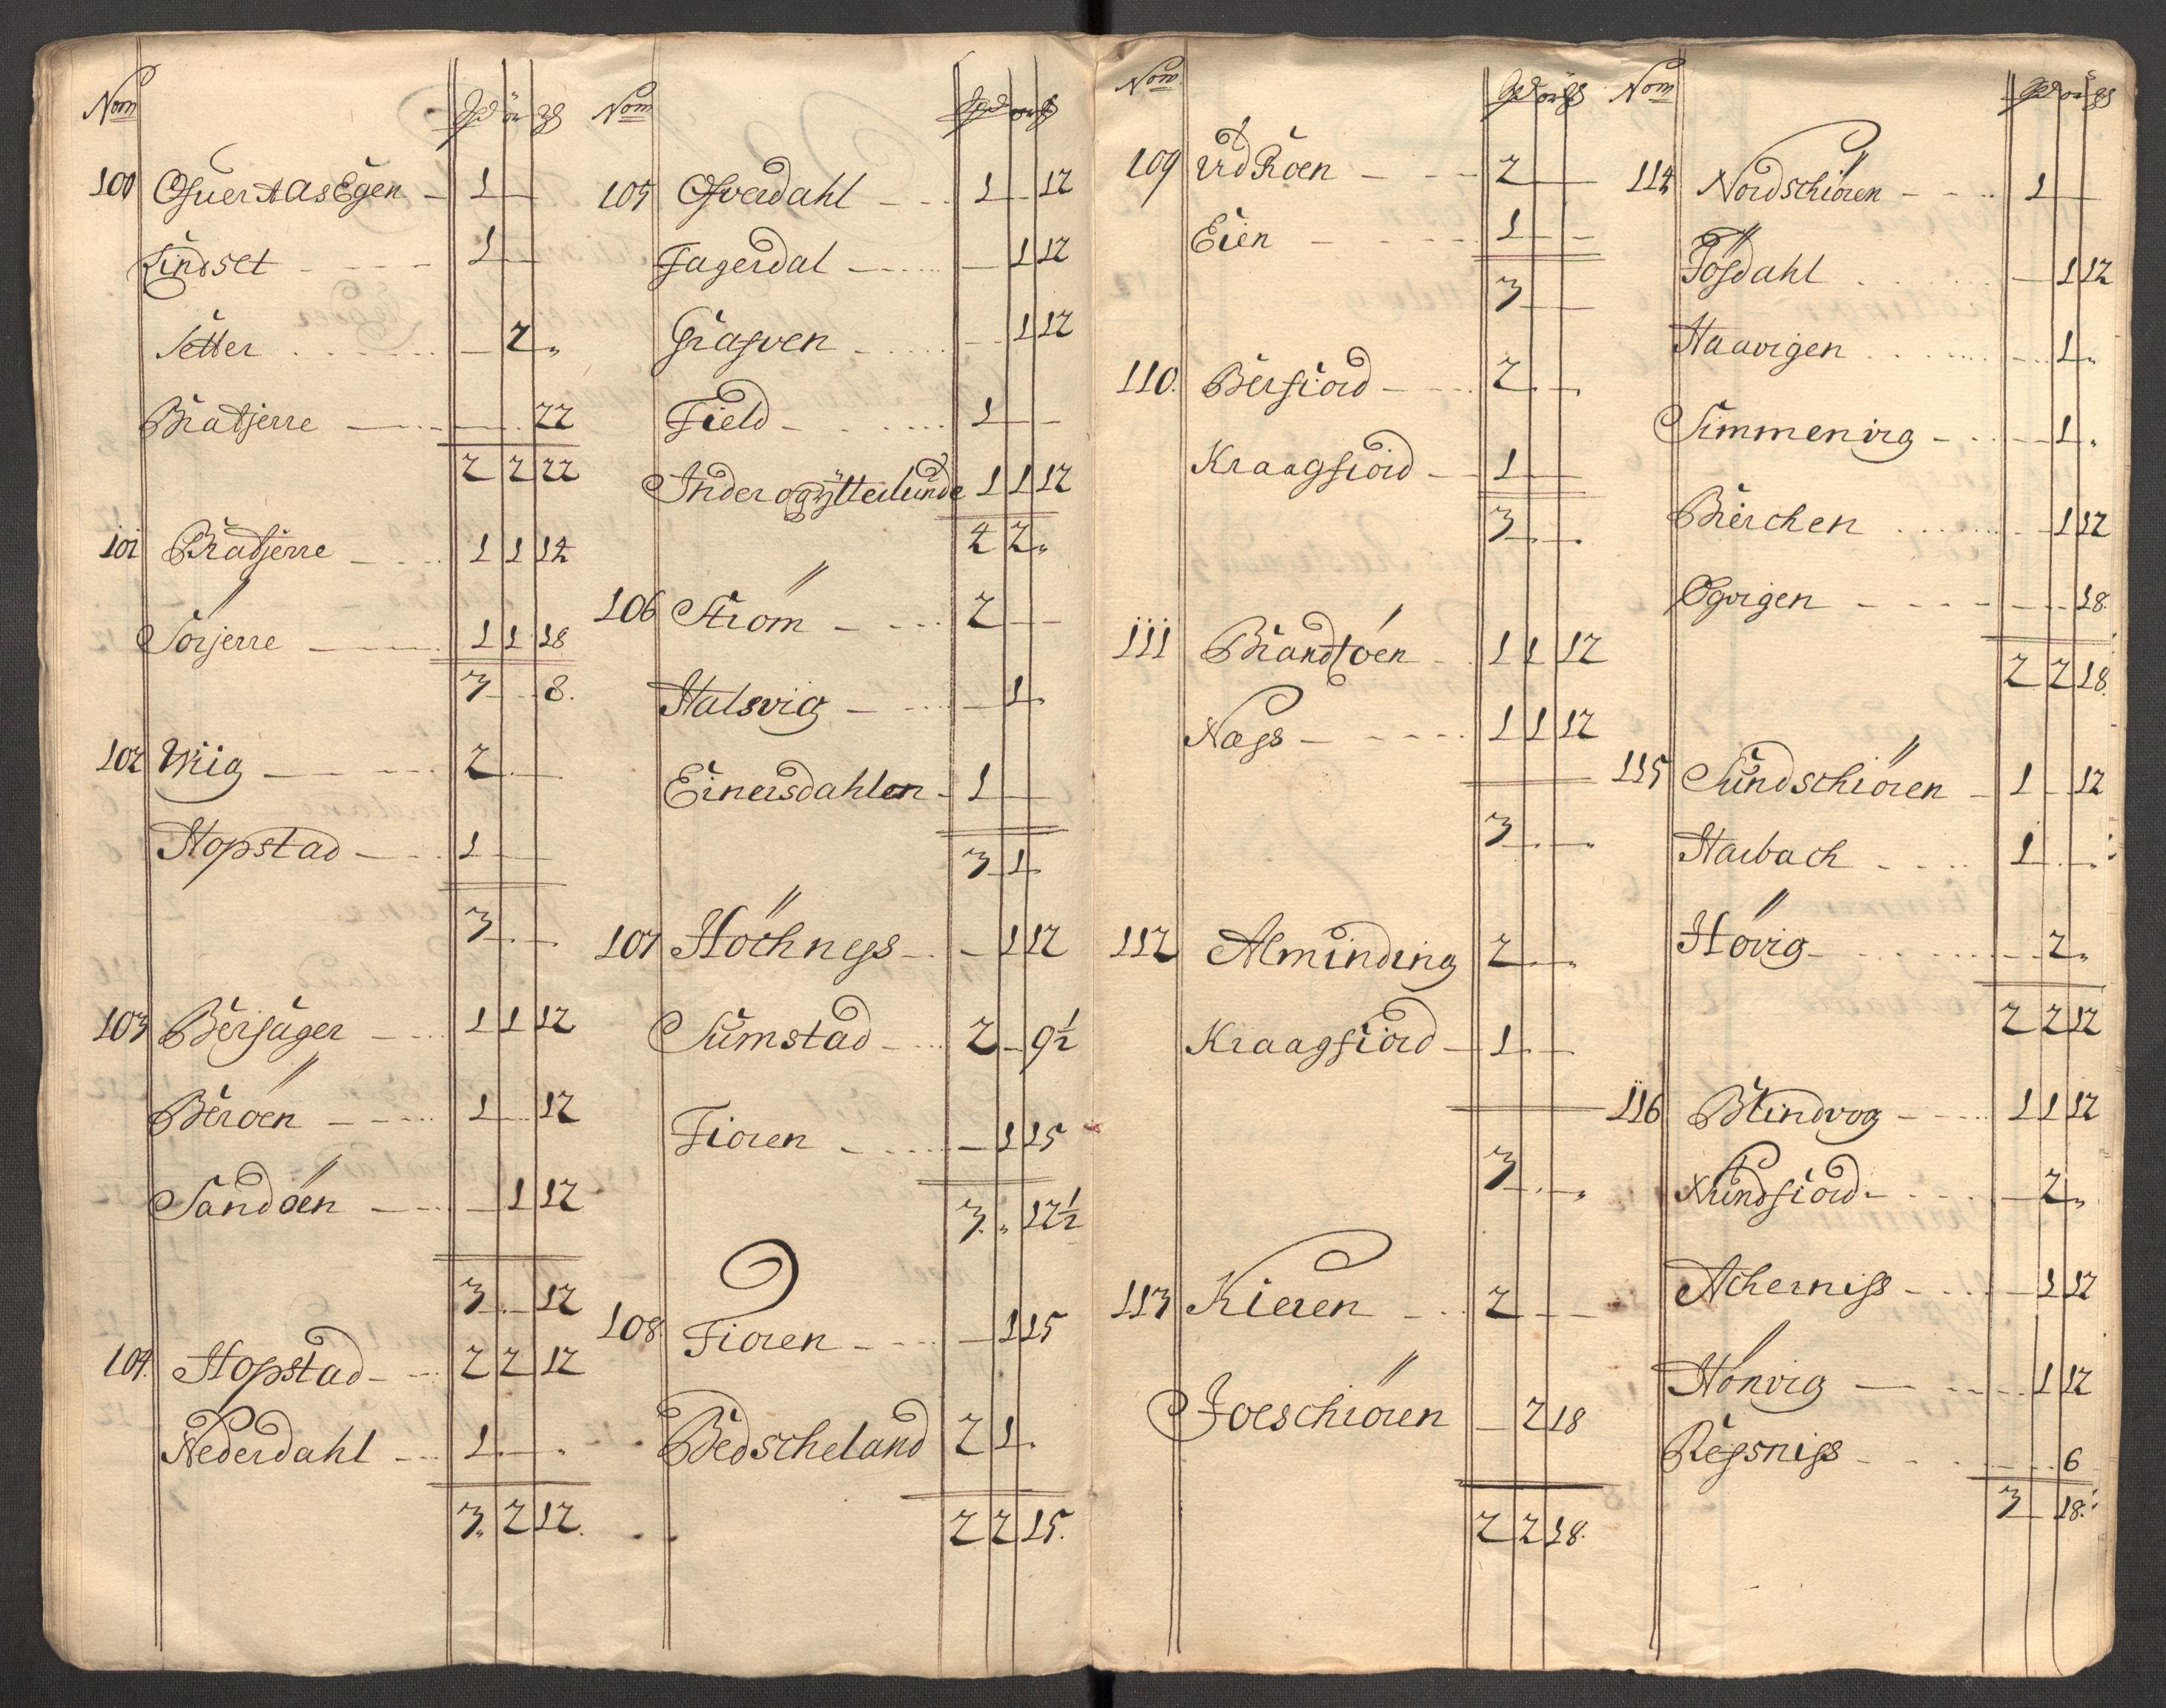 Nom
100 Ofuer Aas Egen 1
Lindset 1
Setter 2
Bratjerre 22
2 2 22
101 Bratjerre 1 1 14
Sörjerre 1 1 18
3 8.
102 Wiig 2
Hopstad 1
3
103 Berfager 1 1 12
Beröen 1 12
Sandöen 1 12
3 12
104. Hopstad 2 2 12
Nederdahl 1
3 2 12.
Nom
105 Ofverdahl 1 12
Fagerdal 1 12
Grafven 1 12
Field 1
Inder og ÿtterlunde 1 1 12
4 2
106 Ström 2
Halsvig 1
Einersdahlen 1
3 1
107 Höchness 1 12
Sumstad 2 9½
Fioren 1 15
3 12½
108 Fioren 1 15
Bedscheland 2 1
2 2 15.
Nom
109 Urd Röen 2
Eien 1
3
110. Berfiord 2
Kraagfiord 1
3
111 Brandtöen 1 1 12
Næss 1 1 12
3
112 Alminding 2
Kraagfiord 1
3
113 Kieren 2
Joeschiören 2 18
2 2 18.
Nom
114 Nordschiören 1
Fösdahl 1 12
Haavigen 1
Simmenvig 1
Bierchen 1 12
Ogvigen 18.
2 2 18
115 Sundschiören 1 12
Harbach 1
Hövig 2
2 2 12
116 Blindvog 1 1 12
Nundfiord 2
Acherniss 1 12
Hönvig 1 12
Ressniss 6
3 18.